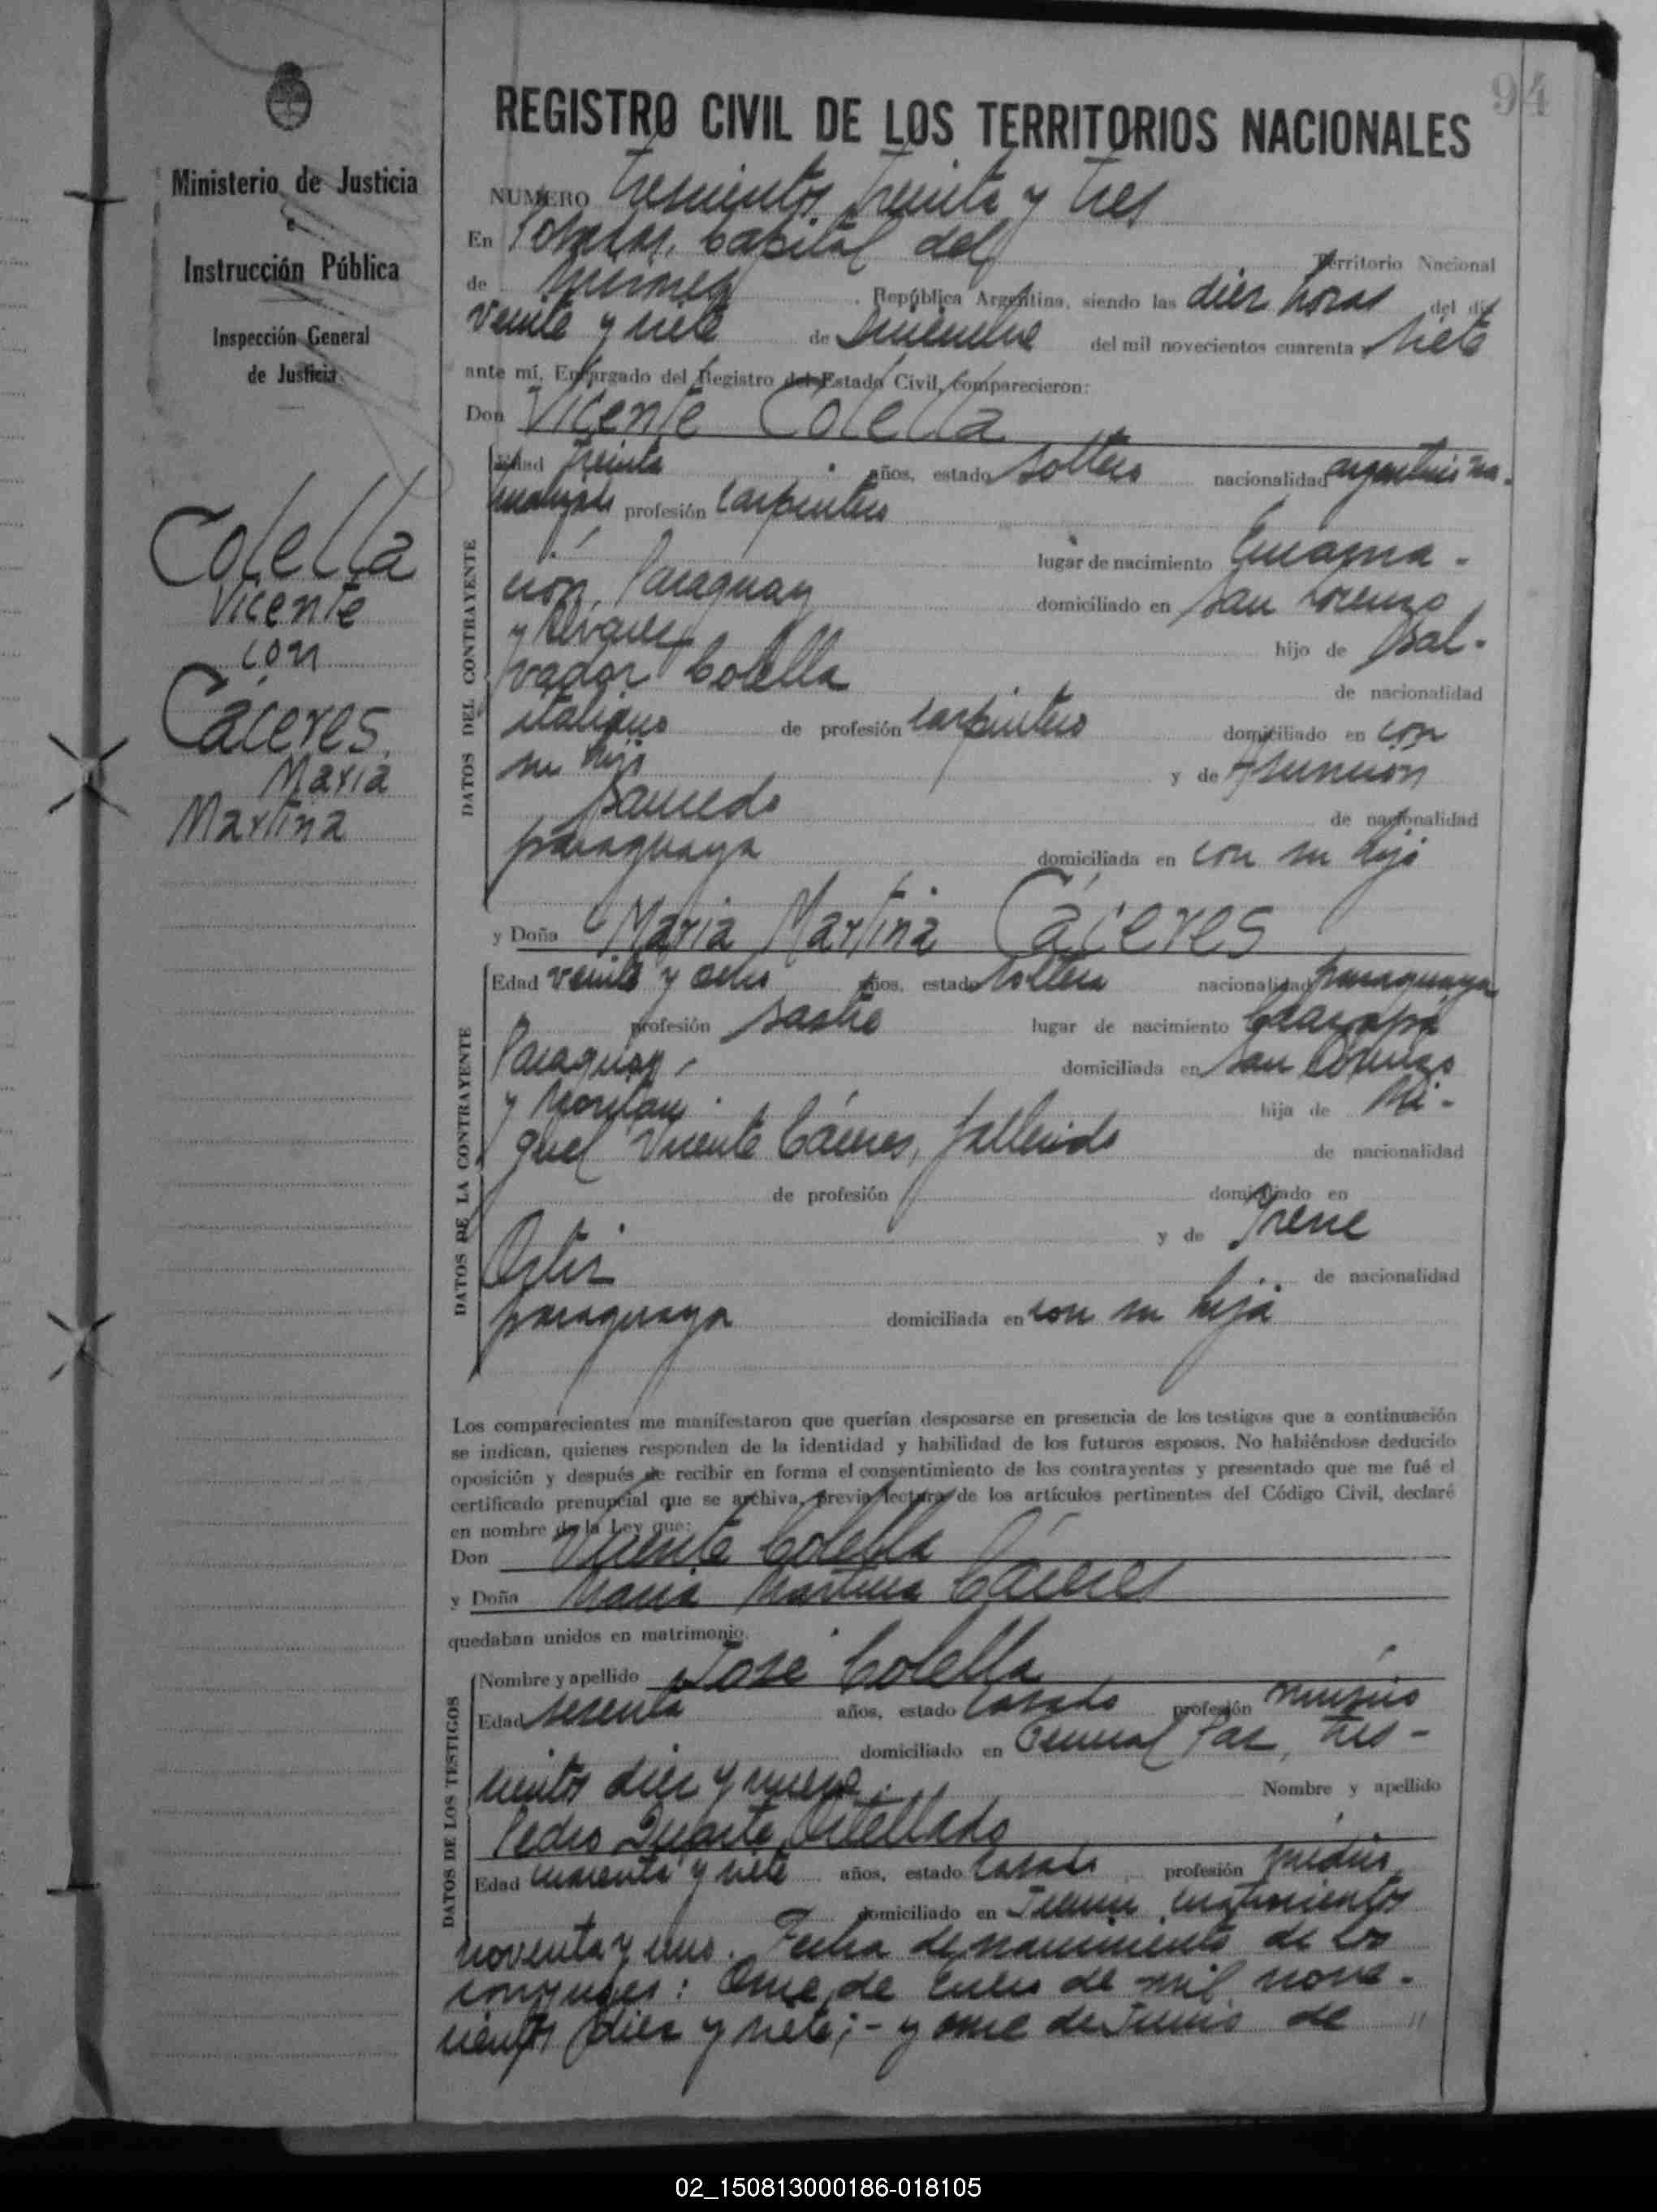 94
Ministerio de Justicia
e
Instrucción Pública
Inspección General
de Justicia
Colella
Vicente
con
Cáceres,
María
Martina
REGISTRO CIVIL DE LOS TERRITORIOS NACIONALES
NUMERO trescientos treinta y tres
En Posadas, Capital del Territorio Nacional
de Misiones República Argentina, siendo las diez horas del día
veinte y siete de Diciembre del mil novecientos cuarenta y siete
ante mí, Encargado del Registro del Estado Civil, comparecieron:
Don Vicente Colella
Edad treinta años, estado soltero nacionalidad argentino na-
profesión carpintero
lugar de nacimiento Encarna-
ción, Paraguay domiciliado en San Lorenzo
y hijo de Sal-
vador Colella de nacionalidad
italiano de profesión carpintero domiciliado en con
su hijo y de Asunción
Saucedo de nacionalidad
paraguaya domiciliada en con su hijo
DATOS DEL CONTRAYENTE
y Doña María Martina Cáceres
Edad veinte y ocho años, estado soltera nacionalidad paraguaya
profesión sastre lugar de nacimiento
Paraguay, domiciliada en San Lorenzo
y hija de Mi-
guel Vicente Cáceres, fallecido de nacionalidad
de profesión domiciliado en
y de Irene
Ortiz de nacionalidad
paraguaya domiciliada en con su hija
DATOS DE LA CONTRAYENTE
Los comparecientes me manifestaron que querían desposarse en presencia de los testigos que a continuación
se indican, quienes responden de la identidad y habilidad de los futuros esposos. No habiéndose deducido
oposición y después de recibir en forma el consentimiento de los contrayentes y presentado que me fué el
certificado prenupcial que se archiva, previa lectura de los artículos pertinentes del Código Civil, declaré
en nombre de la Ley que:
Don Vicente Colella
y Doña María Martina Cáceres
quedaban unidos en matrimonio.
Nombre y apellido José Colella
Edad sesenta años, estado casado profesión músico
domiciliado en General Paz, tres-
cientos diez y nueve. Nombre y apellido
Pedro Duarte Ortellado
Edad cuarenta y siete años, estado casado profesión médico
domiciliado en cuatrocientos
noventa y uno. Fecha de nacimiento de los
cónyuges: Once de Enero de mil nove-
cientos diez y siete; - y once de Junio de "
DATOS DE LOS TESTIGOS
02_150813000186-018105